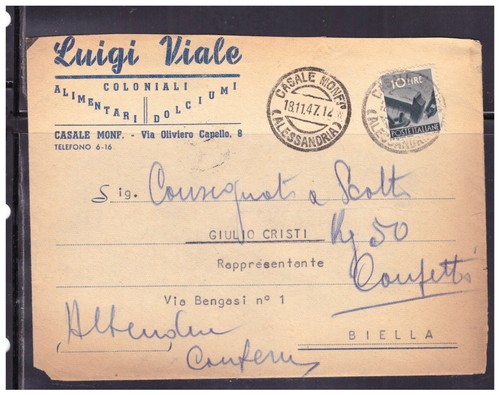 Luigi Viale
COLONIALI
ALIMENTARI DOLCIUMI
CASALE MONF. - Via Oliviero Capello, 8
TELEFONO 6-16
CASALE MONFTO
18.11.47.12
(ALESSANDRIA)
10 LIRE
POSTE ITALIANE
CASALE
(ALESSANDRIA)
Sig. Consegnato a Scotti
GIULIO CRISTI Kg 50
Rappresentante Confetti
Via Bengasi n° 1
BIELLA
Attendere